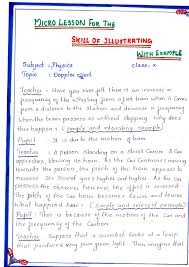 MICRO LESSON FOR THE
SKILL OF ILLUSTRATING
WITH EXAMPLE
Subject : Physics Class : X
Topic : Doppler effect
Teacher : Have you ever felt that is an increase in
frequency of the whistling from a train when it comes
near a distance to the station and decrease in frequency
when the train passes us without stopping. Why does
this happen? (Simple and interesting example)
Pupil :
Teacher : A person standing on a Car
approaches, blowing its horn. As the Car continues moving
towards the person, the pitch of the horn appears to
increase. Its sound goes higher and higher. As the Car
passes the observer however, the effect is reversed
the pitch of the Car horn becomes lower and lower
what happened here? (Simple and relevant example)
Pupil : That is because of the motion of the Car and
the frequency of the Car horn.
Teacher : Suppose that a somewhat looks at a lamp
that produces very pure green light. Then imagine that